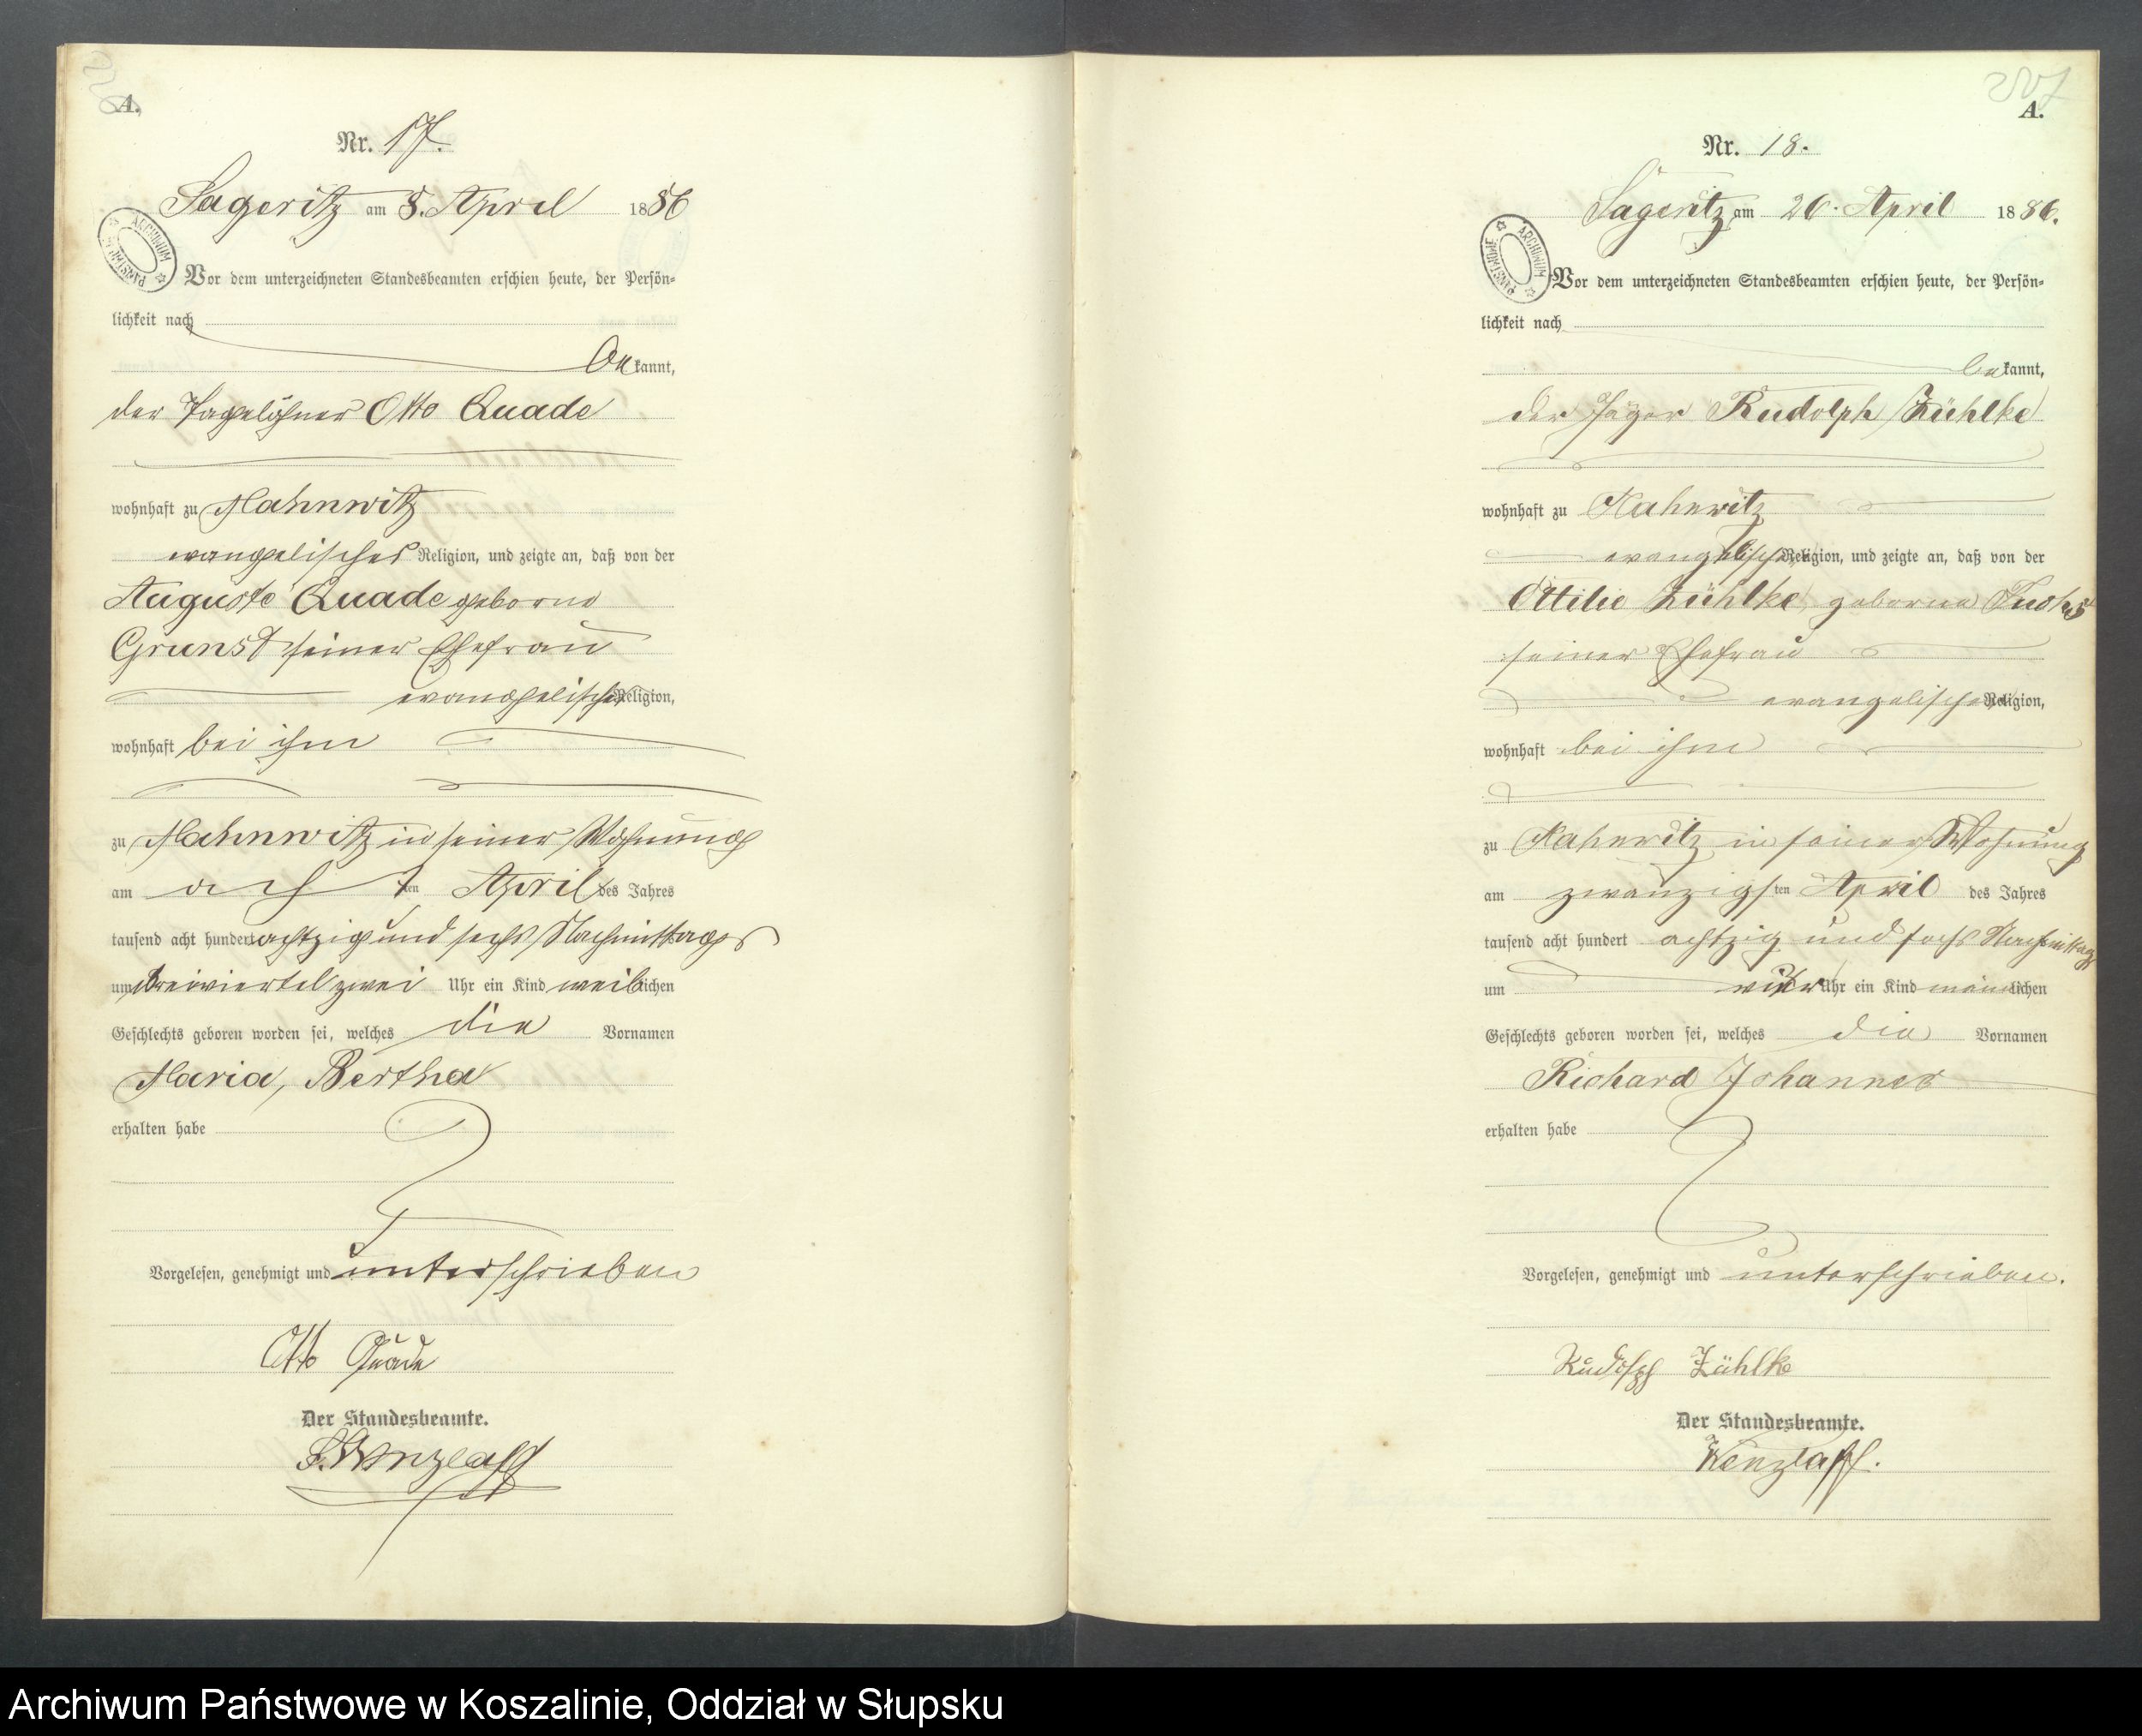 A.
Nr. 17.
Sageritz am 8. April 1886
ARCHIWUM PAŃSTWOWE
Vor dem unterzeichneten Standesbeamten erschien heute, der Persön-
lichkeit nach
bekannt,
der Tagelöhner Otto Quade
wohnhaft zu Mahnwitz
evangelischer Religion, und zeigte an, daß von der
Auguste Quade geborne
Grunst seiner Ehefrau
evangelischer Religion,
wohnhaft bei ihm
zu Mahnwitz in seiner Wohnung
am achten April des Jahres
tausend acht hundert achtzig und sechs Nachmittags
um dreiviertel zwei Uhr ein Kind weiblichen
Geschlechts geboren worden sei, welches die Vornamen
Maria, Bertha
erhalten habe
Vorgelesen, genehmigt und unterschrieben
Otto Quade
Der Standesbeamte.
Wenzlaff
207
A.
Nr. 18.
Sageritz am 26. April 1886.
ARCHIWUM PAŃSTWOWE
Vor dem unterzeichneten Standesbeamten erschien heute, der Persön-
lichkeit nach
bekannt,
der Jäger Rudolph Zühlke
wohnhaft zu Mahnwitz
evangelischer Religion, und zeigte an, daß von der
Ottilie Zühlke geborne
seiner Ehefrau
evangelischer Religion,
wohnhaft bei ihm
zu Mahnwitz in seiner Wohnung
am zwanzigsten April des Jahres
tausend acht hundert achtzig und sechs Nachmittags
um vier Uhr ein Kind männlichen
Geschlechts geboren worden sei, welches die Vornamen
Richard Johannes
erhalten habe
Vorgelesen, genehmigt und unterschrieben.
Rudolph Zühlke
Der Standesbeamte.
Wenzlaff.
Archiwum Państwowe w Koszalinie, Oddział w Słupsku